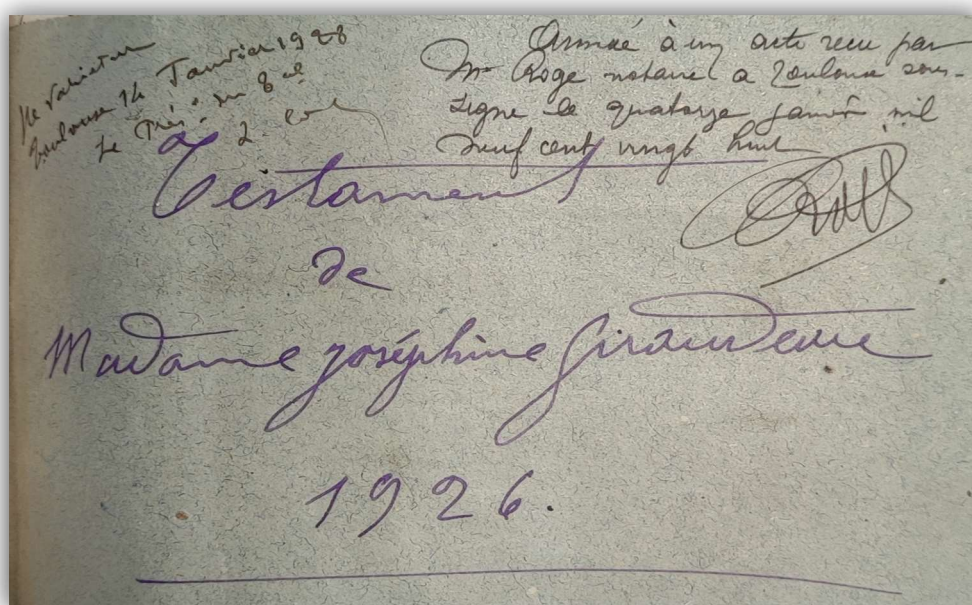 Ne varietur
Toulouse 14 Janvier 1928
Le Prés
Annexé à un acte recu par
Me Roge notaire a Toulouse sous-
signe le quatorze janvier mil
neuf cent vingt huit
Testament
de
Madame Joséphine
1926.